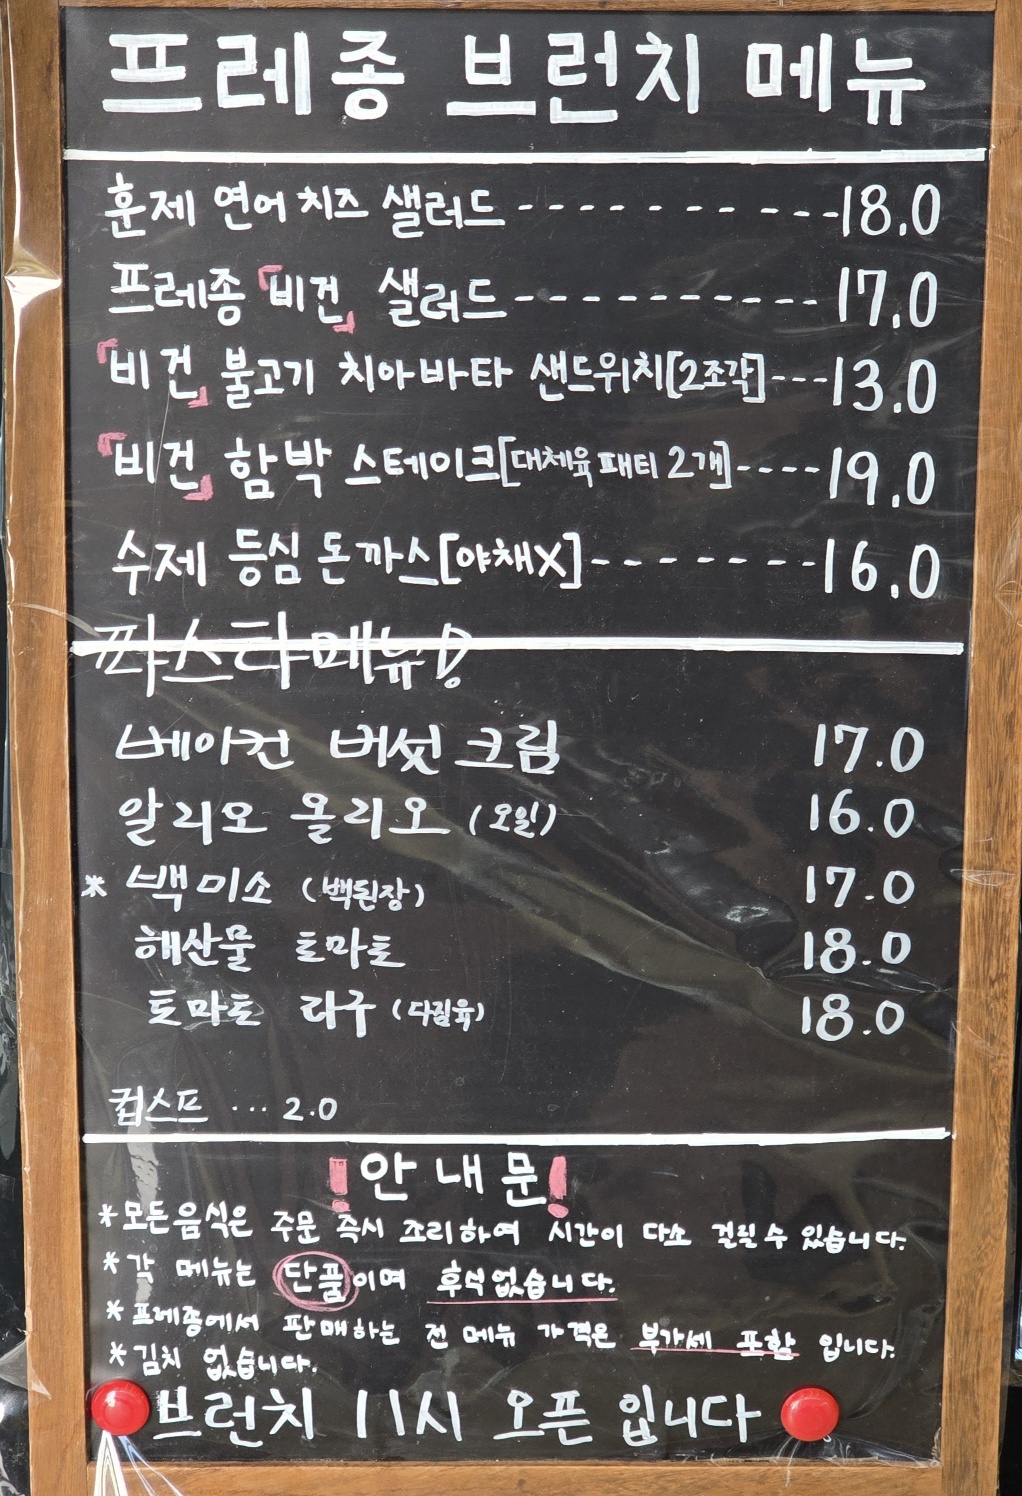 프레종 브런치 메뉴
훈제 연어 치즈 샐러드 ----------- 18.0
프레종 「비건」 샐러드 ---------- 17.0
「비건」 불고기 치아바타 샌드위치[2조각] --- 13.0
「비건」 함박 스테이크[대체육 패티 2개] ---- 19.0
수제 등심 돈까스[야채X] ------- 16.0
파스타 메뉴!
베이컨 버섯 크림 17.0
알리오 올리오 (오일) 16.0
* 백미소 (백된장) 17.0
해산물 토마토 18.0
토마토 라구 (다짐육) 18.0
컵스프 ... 2.0
! 안내문 !
* 모든 음식은 주문 즉시 조리하여 시간이 다소 걸릴 수 있습니다.
* 각 메뉴는 단품이며 후식 없습니다.
* 프레종에서 판매하는 전 메뉴 가격은 부가세 포함 입니다.
* 김치 없습니다.
브런치 11시 오픈 입니다